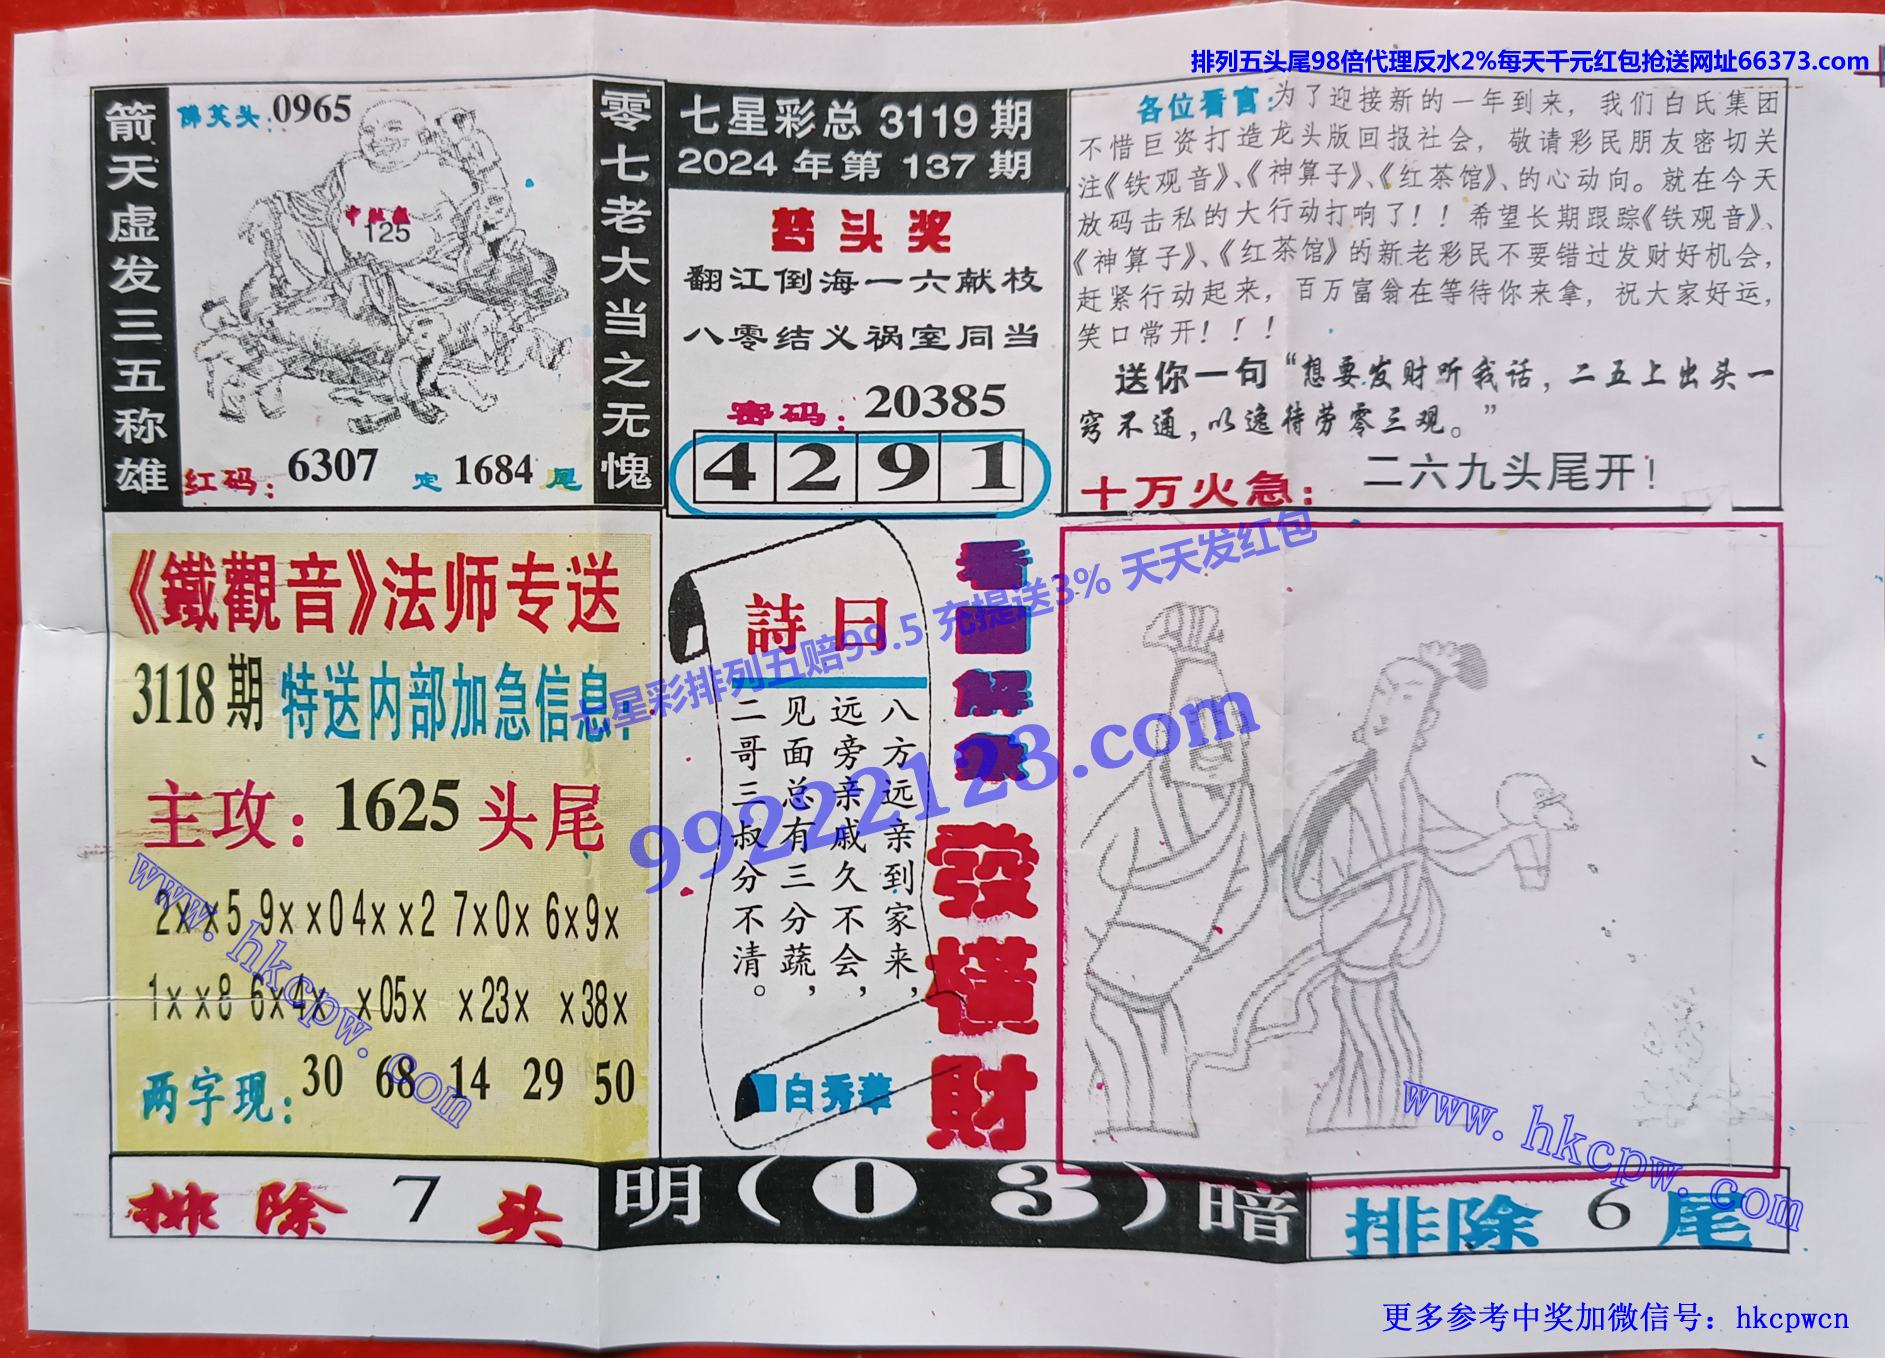 排列五头尾98倍代理反水2%每天千元红包抢送网址66373.com
箭天虚发三五称雄
佛笑头:0965
中肚藏
125
红码:6307
定1684尾
零七老大当之无愧
七星彩总3119期
2024年第137期
头奖
翻江倒海一六献枝
八零结义祸室同当
密码:20385
4291
各位看官:为了迎接新的一年到来,我们白氏集团
不惜巨资打造龙头版回报社会,敬请彩民朋友密切关
注《铁观音》、《神算子》、《红茶馆》、的心动向。就在今天
放码击私的大行动打响了!!希望长期跟踪《铁观音》、
《神算子》、《红茶馆》的新老彩民不要错过发财好机会,
赶紧行动起来,百万富翁在等待你来拿,祝大家好运,
笑口常开!!!
送你一句“想要发财听我话,二五上出头一
窍不通,以逸待劳零三观。”
十万火急:二六九头尾开!
《鐵觀音》法师专送
3118期特送内部加急信息:
主攻:1625头尾
2××5 9××0 4××2 7×0× 6×9×
1××8 6×4× ×05× ×23× ×38×
两字现:30 68 14 29 50
詩曰
八方远亲到家来,
远旁亲戚久不会,
见面总有三分蔬,
二哥三叔分不清。
白秀華
看圖解條
發橫財
七星彩排列五赔99.5 充提送3% 天天发红包
99222123.com
www.hkcpw.com
www.hkcpw.com
排除7头
明(03)暗
排除6尾
更多参考中奖加微信号:hkcpwcn